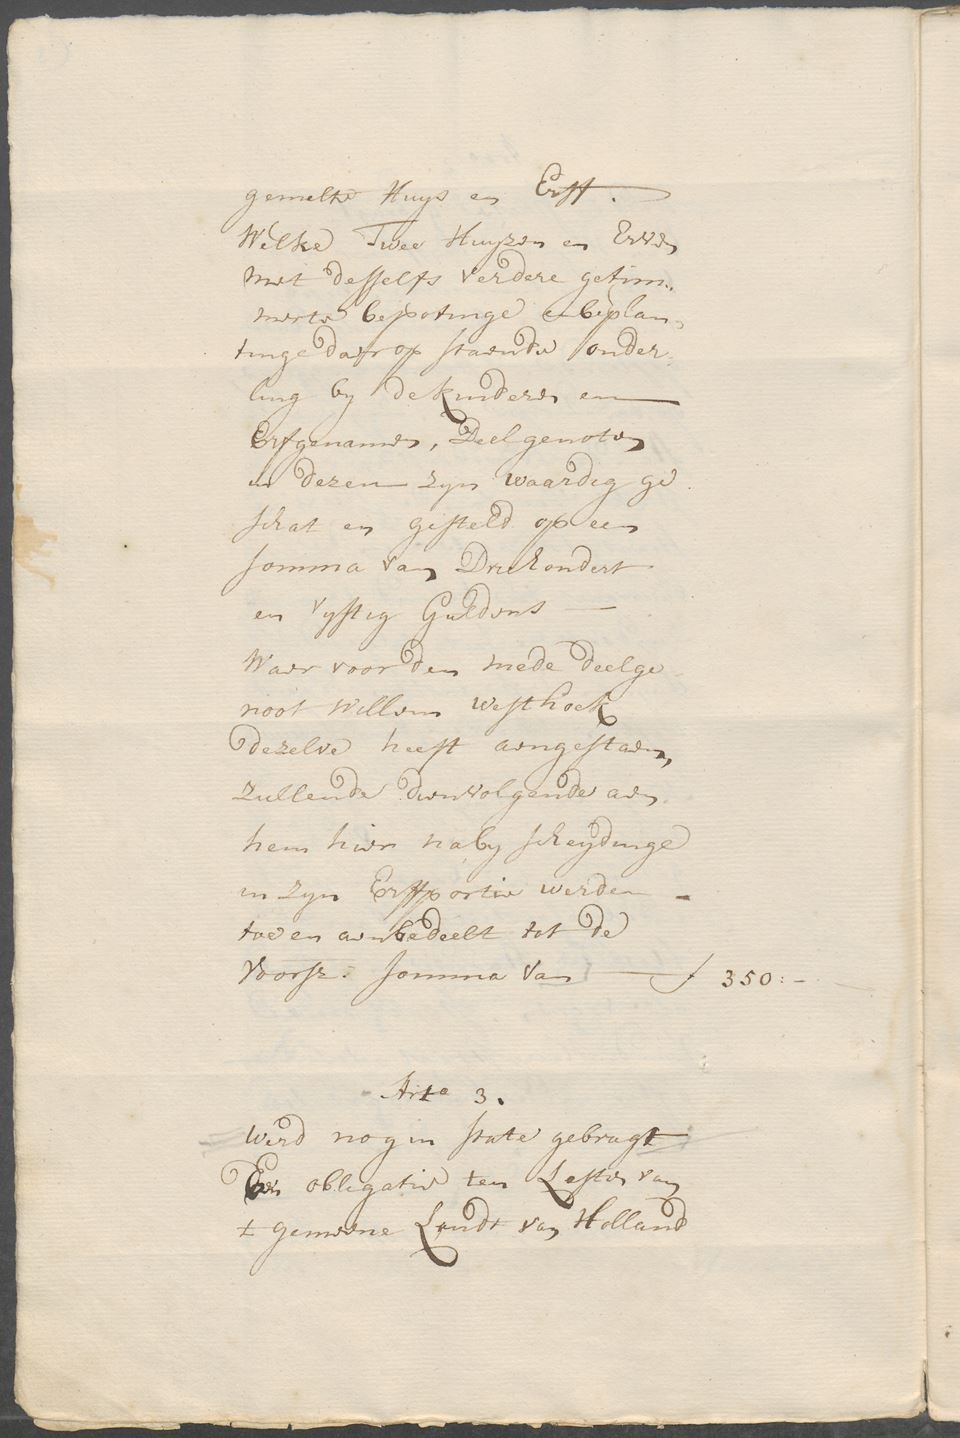 gemelte Huys en Erff.
Welke Twee Huyzen en Erven
met desselfs verdere getim-
merte bepotinge en beplan-
tinge daer op staende onder-
ling by de Kinderen en
Erfgenamen, Deelgenoten
in dezen zyn waardig ge
schat en gesteld op een
somma van Driehondert
en vyftig Guldens —
Waer voor den mede deelge
noot Willem Westhoek
dezelve heeft aengestaen,
zullende dienvolgende aen
hem hier naby scheydinge
in zyn Erffportie werden -
toe en aenbedeelt tot de
voorsz. somma van — ƒ 350:-
Arto 3.
Werd nog in state gebragt
Een obligatie ten Lasten van
t gemeene Landt van Holland